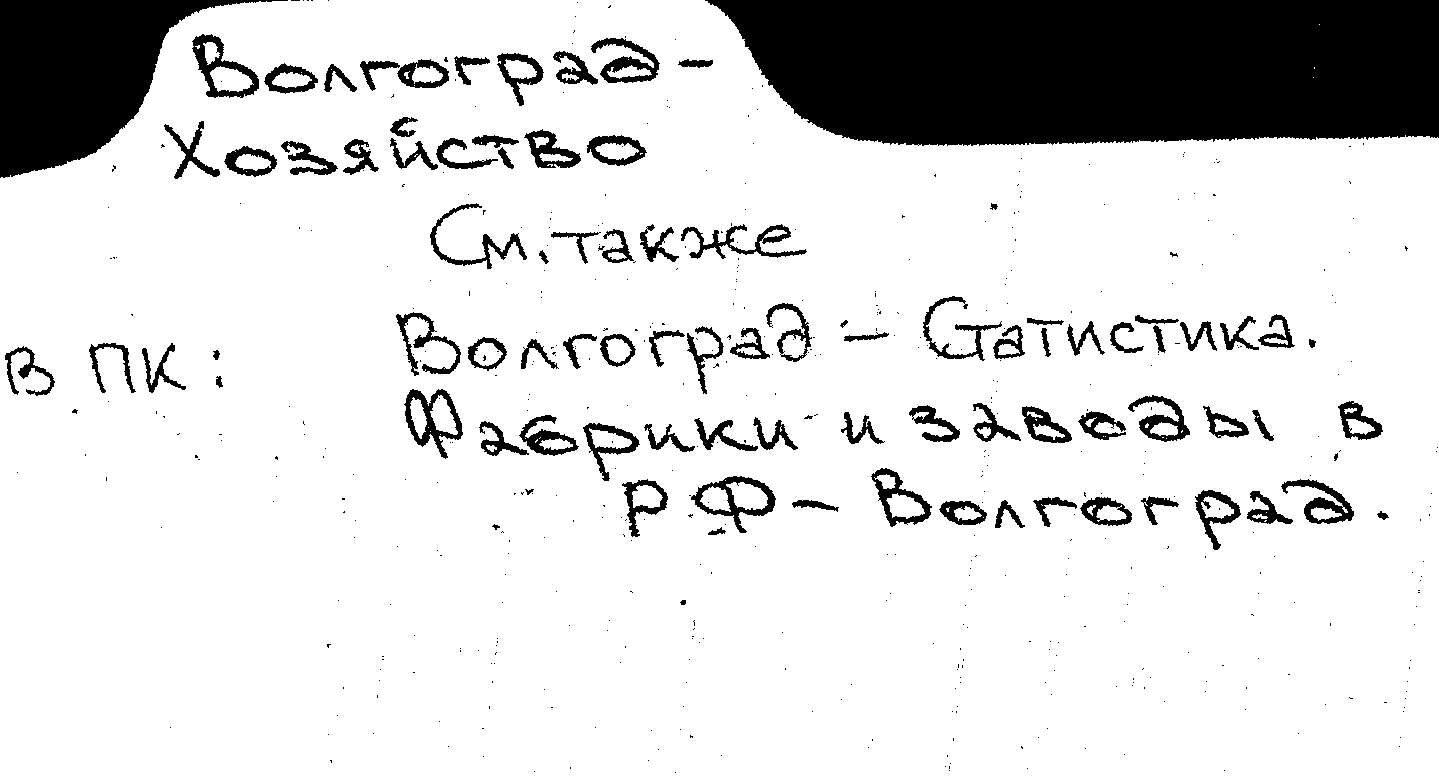 Волгоград –
Хозяйство
См. также
В ПК: Волгоград – Статистика.
Фабрики и заводы в
РФ – Волгоград.